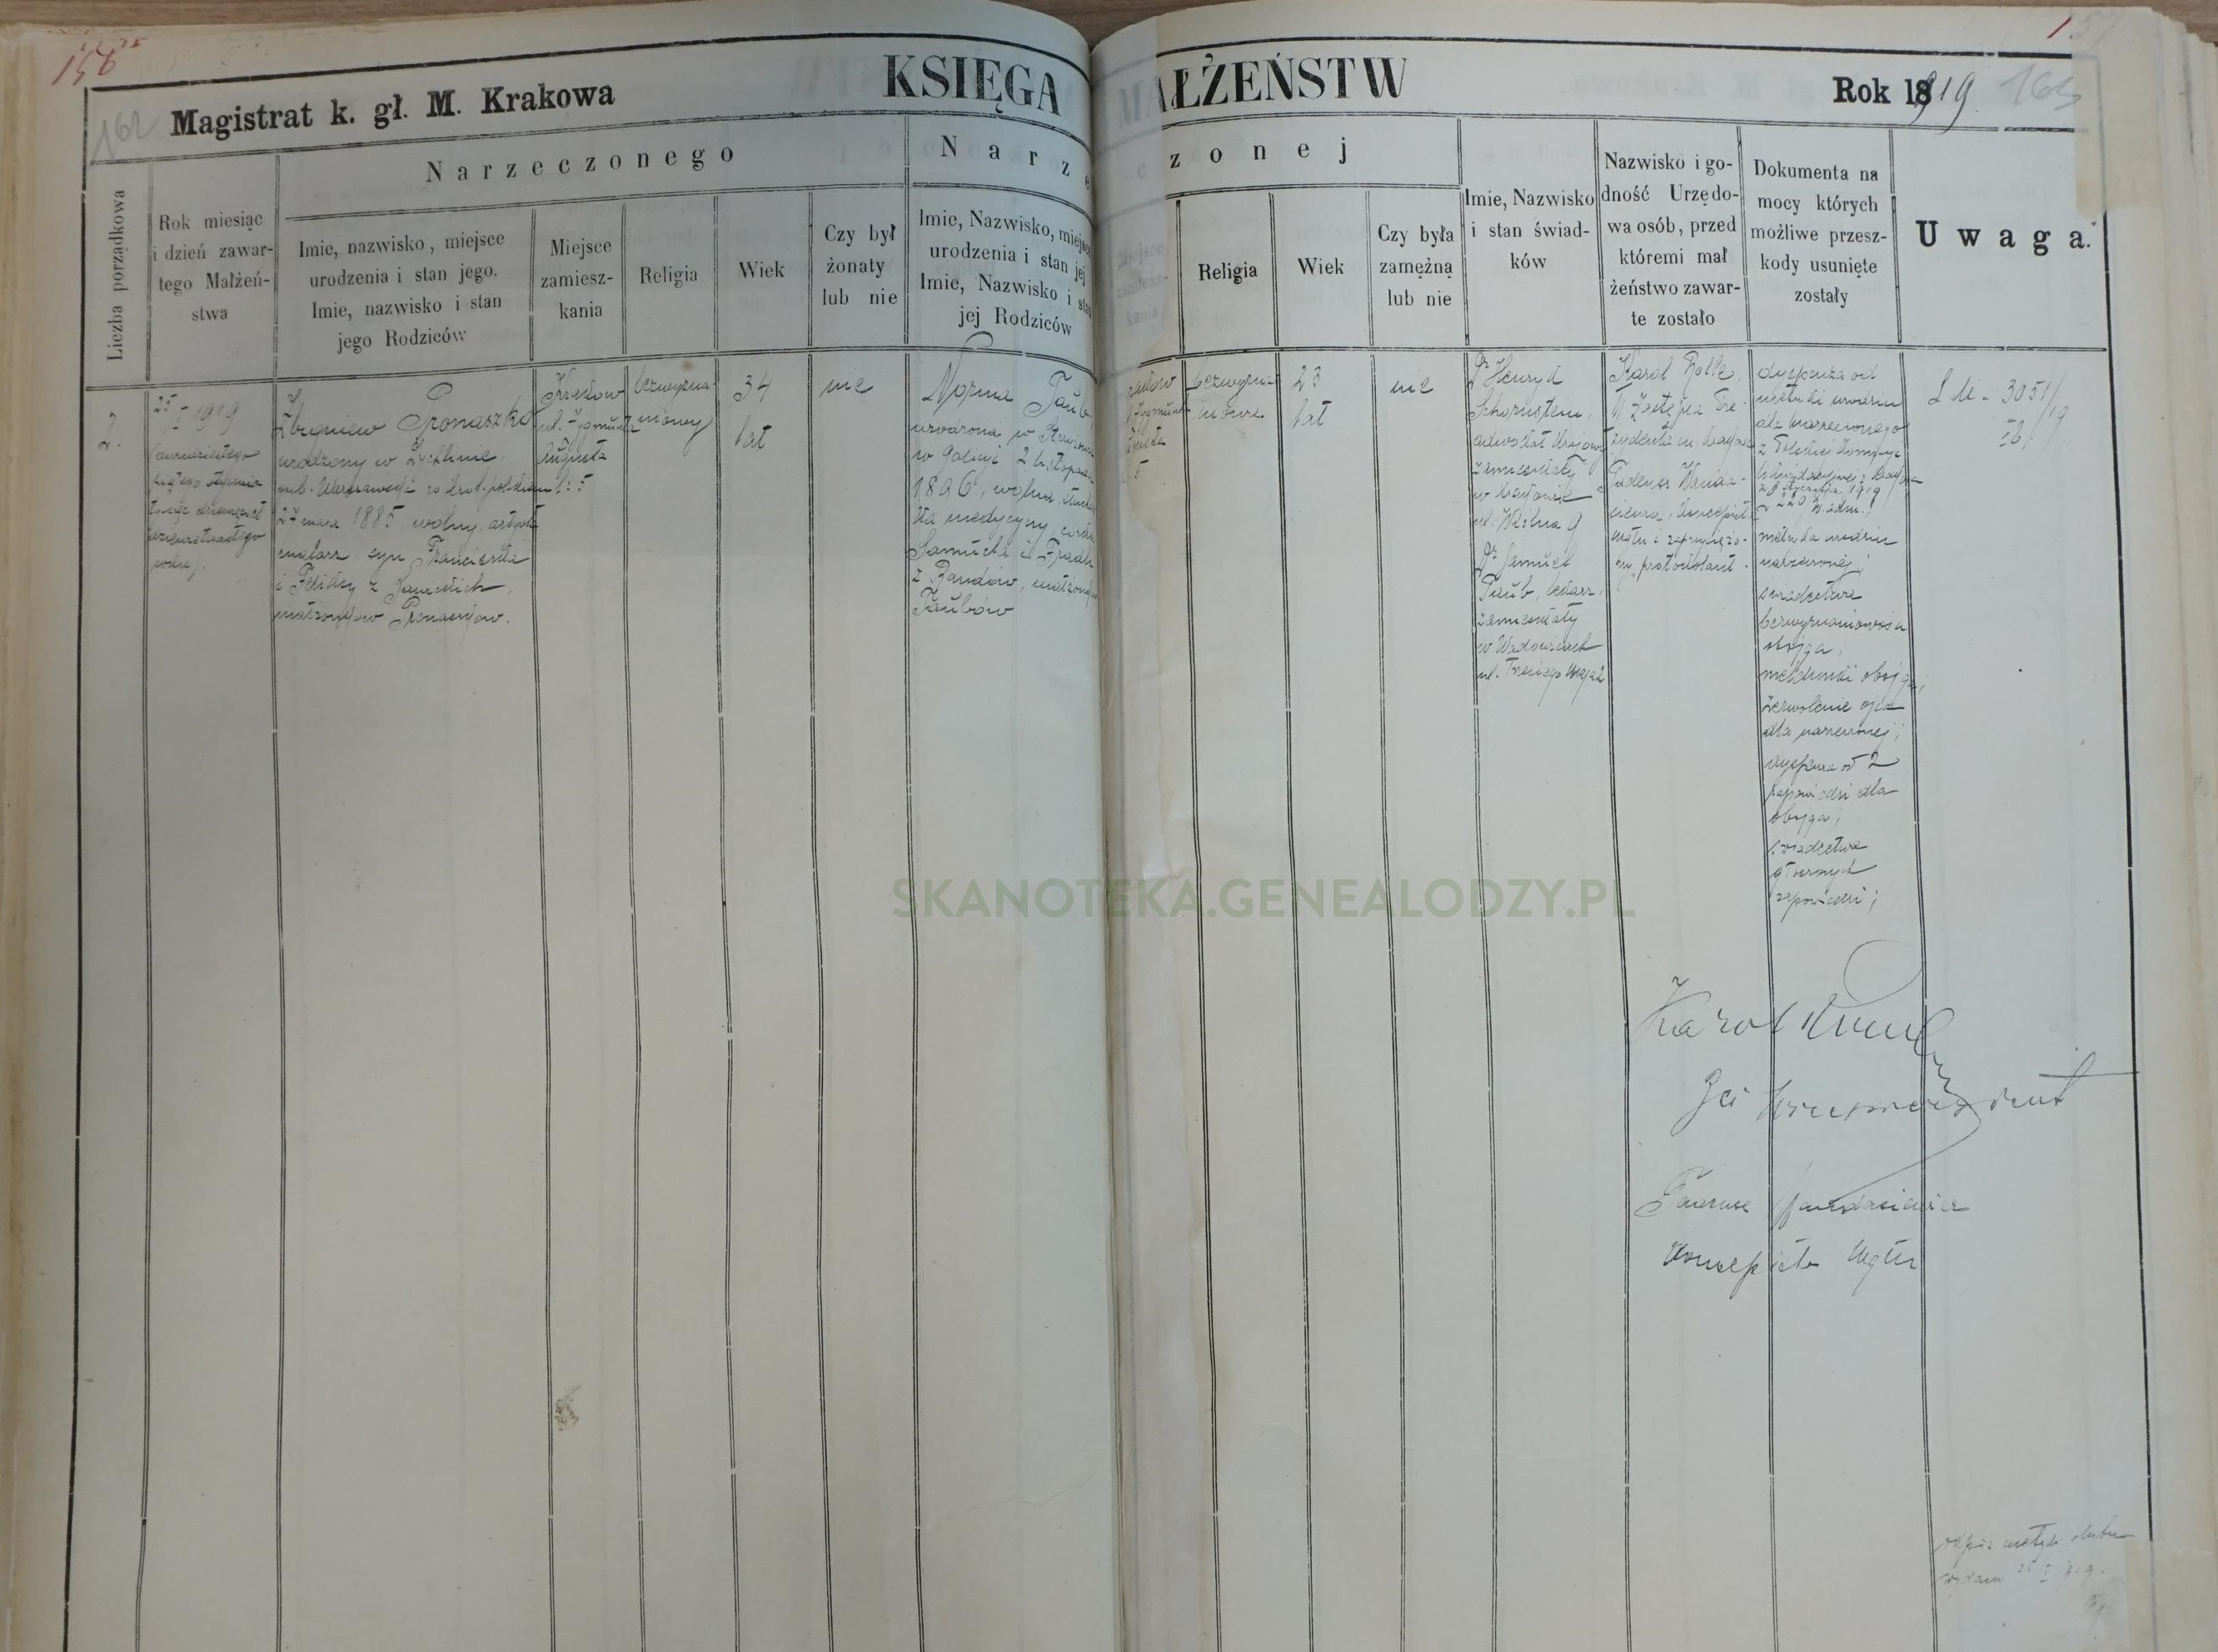 156
162
Magistrat k. gł. M. Krakowa
KSIĘGA MAŁŻEŃSTW
Rok 1919
163
157
Narzeczonego
Narzeczonej
Liczba porządkowa
Rok miesiąc
i dzień zawar-
tego Małżeń-
stwa
Imie, nazwisko, miejsce
urodzenia i stan jego.
Imie, nazwisko i stan
jego Rodziców
Miejsce
zamiesz-
kania
Religia
Wiek
Czy był
żonaty
lub nie
Imie, Nazwisko, miejsce
urodzenia i stan jej
Imie, Nazwisko i stan
jej Rodziców
Religia
Wiek
Czy była
zamężną
lub nie
Imie, Nazwisko
i stan świad-
ków
Nazwisko i go-
dność Urzędo-
wa osób, przed
któremi mał
żeństwo zawar-
te zostało
Dokumenta na
mocy których
możliwe przesz-
kody usunięte
zostały
Uwaga.
2.
25/I 1919
dwudziestego
piątego stycznia
tysiąc dziewięćset
dziewiętnastego
roku).
Zbigniew Pronaszko
urodzony w
gub. Warszawska w Król. polskiem
27 maja 1885, wolny, artysta
malarz syn Franciszka
i Felicyi z Janickich,
małżonków Pronaszków.
Kraków
ul. Zygmunta
Augusta
l: 5
bezwyzna-
niowy
34
lat
nie
Norma Taub
urodzona w
w Galicyi 2 listopada
1896, wolna, słucha
czka medycyny, córka
Samuela i
z Bandów, małżonków
Taubów
Kraków
Zygmunta
Augusta
5
bezwyzna-
niowa
23
lat
nie
Dr Henryk
adwokat krajowy
zamieszkały
w Krakowie
ul. Wiślna 9
Dr Samuel
Taub, lekarz,
zamieszkały
w Wadowicach
ul. Trzeciego Maja 2
Karol Rolle,
Zastępca Pre-
zydenta m. Krakowa
Tadeusz Wanda-
siewicz, koncepista
magistratu i zaprzysiężo-
ny protokolant.
dyspenza od
metryki urodzin
dla narzeczonego
z Polskiej Komisyi
Likwidacyjnej z Krakowa
z 9 stycznia 1919
metryka urodzin
narzeczonej;
świadectwa
bezwyznaniowości
obojga;
meldunki obojga;
zezwolenie ojca
dla narzeczonej;
dyspenza od 2
zapowiedzi dla
obojga;
świadectwa
głoszonych
zapowiedzi;
L M - 3051/19
Ib/
Karol Rolle
Jci Wiceprezydent
Tadeusz Wandasiewicz
Koncepista Mgtu
odpis metryki ślubu
wydano 25/I 919.
SKANOTEKA.GENEALODZY.PL